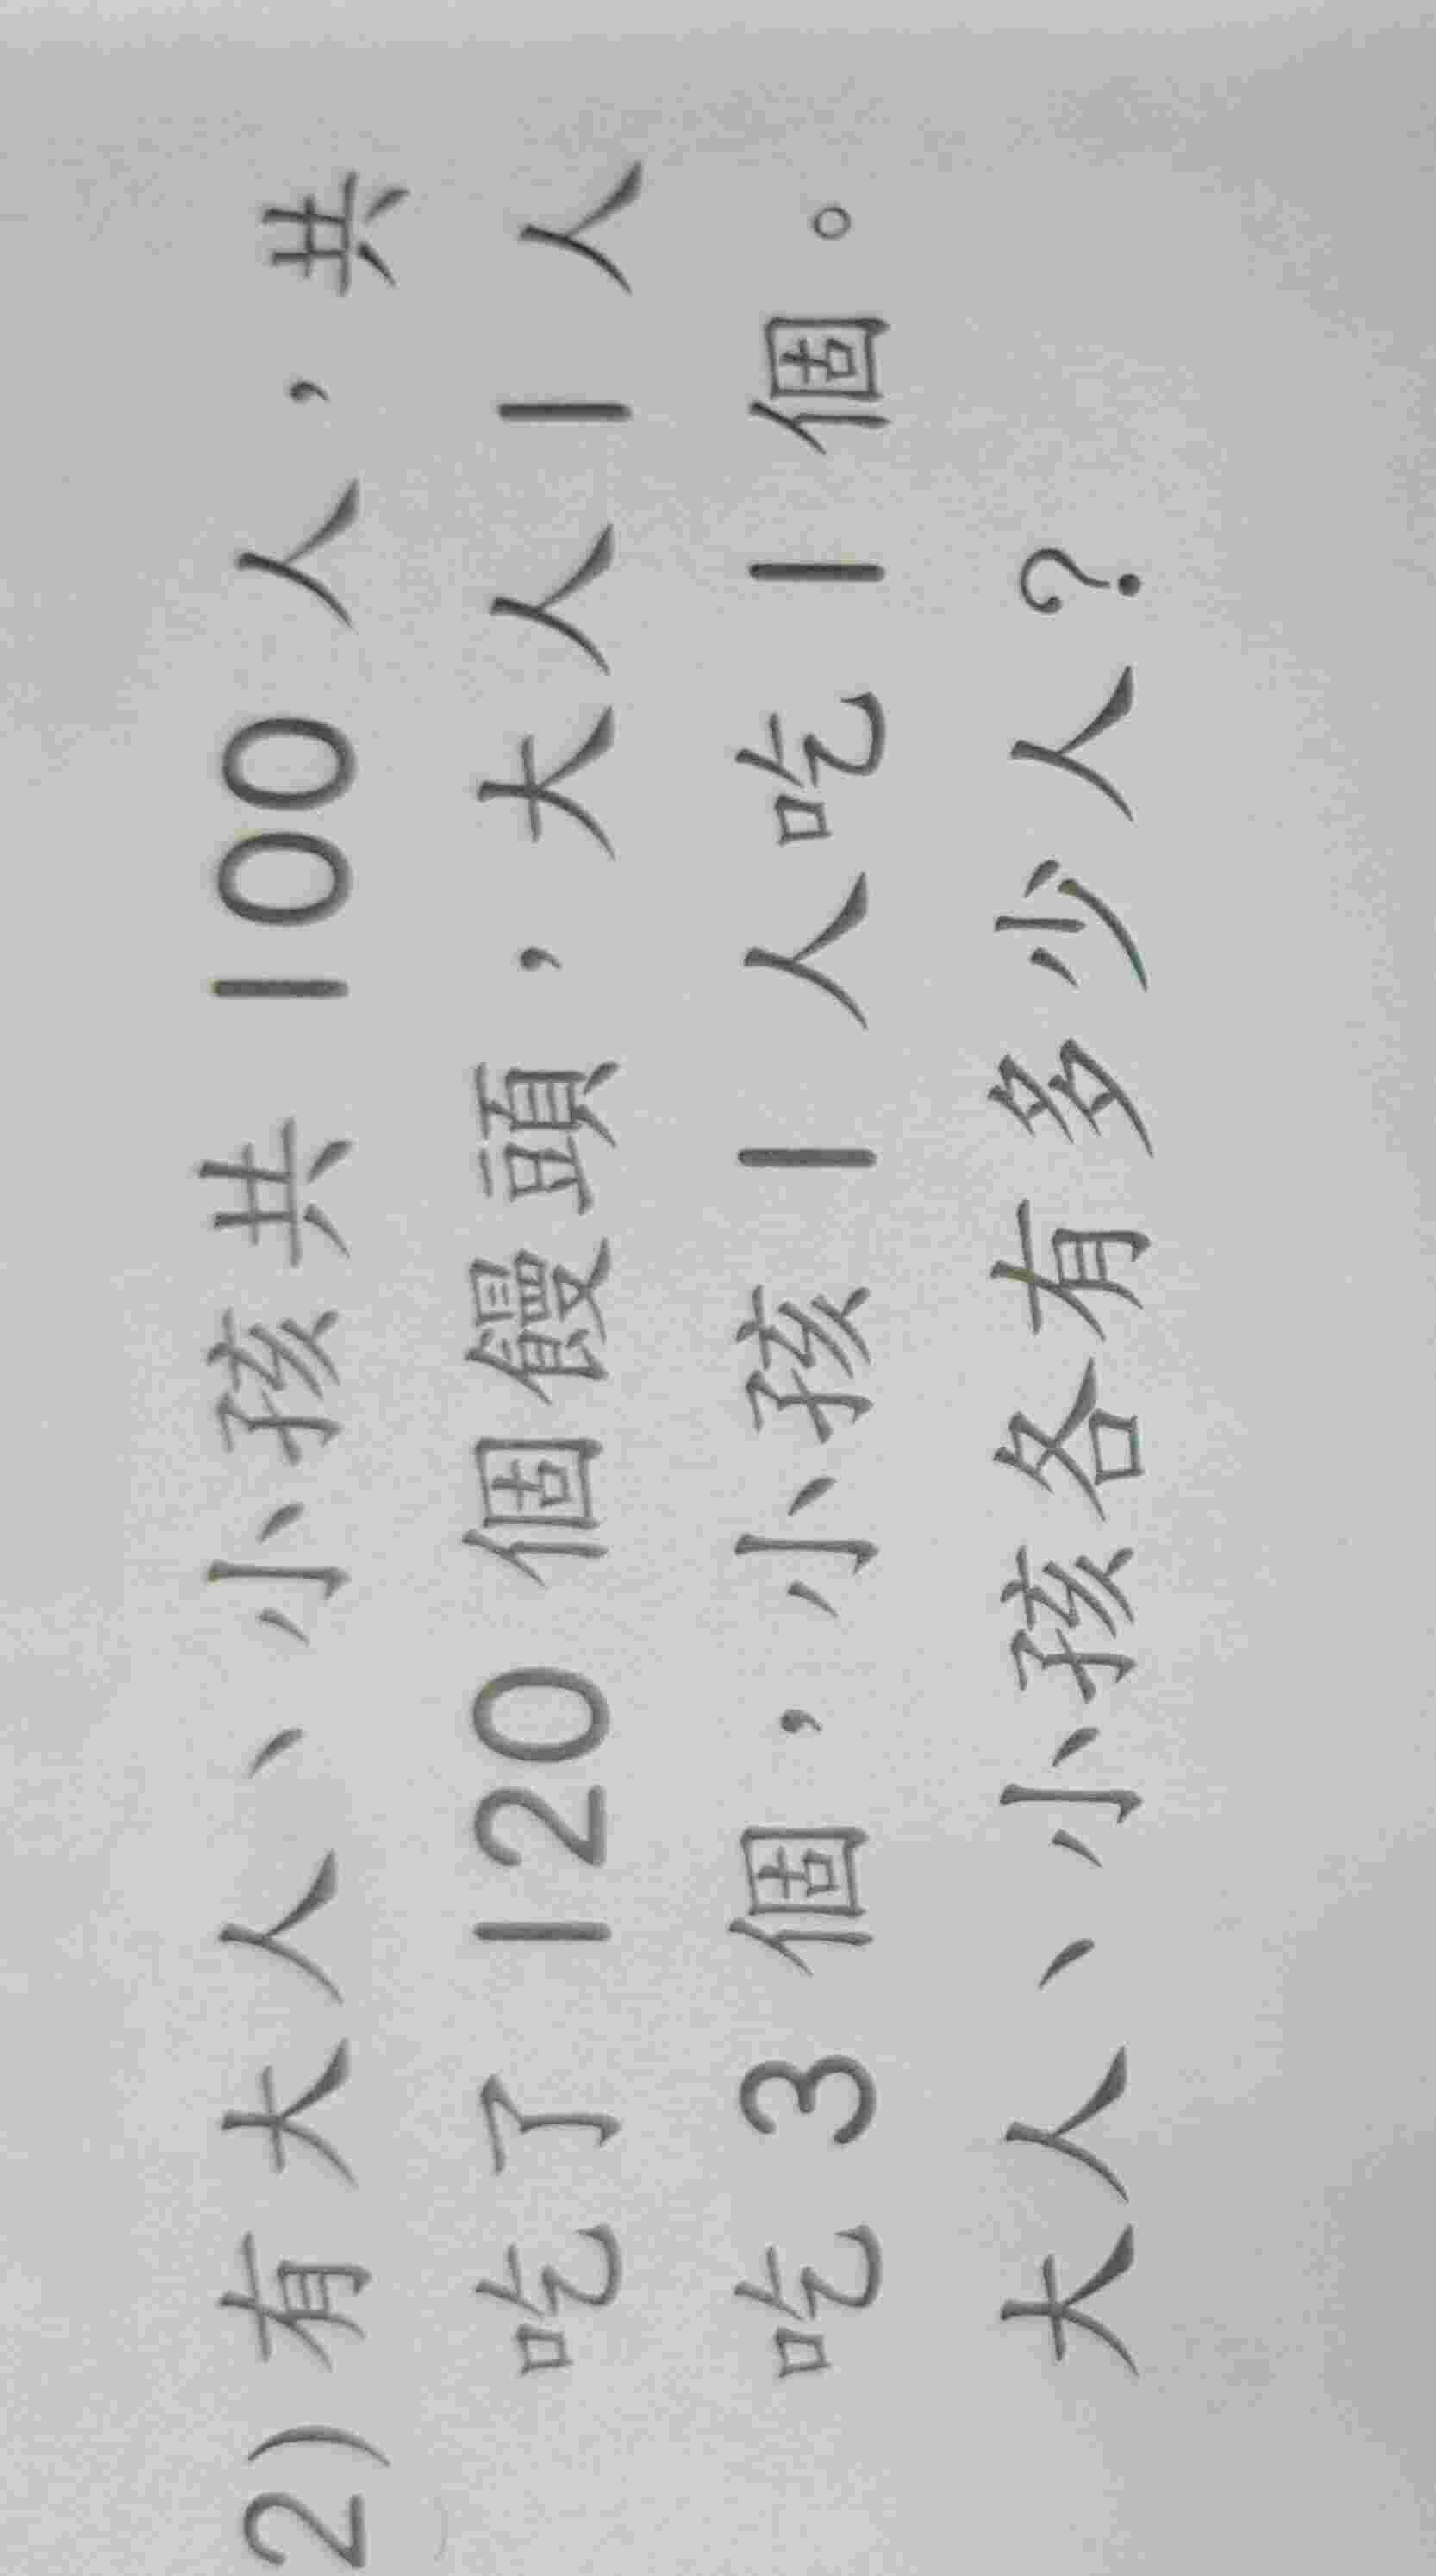 2) 有大人、小孩共 100 人，共
吃了 120 個饅頭，大人 1 人
吃 3 個，小孩 1 人吃 1 個。
大人、小孩各有多少人？